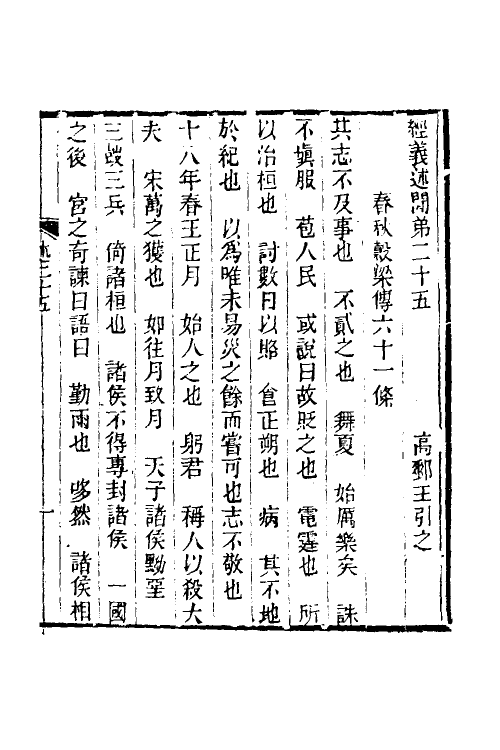 經義述聞弟二十五　高郵王引之
春秋穀梁傳六十一條
其志不及事也　不貳之也　舞夏　始厲樂矣　誅
不塡服　苞人民　或說曰故貶之也　電霆也　所
以治桓也　討數日以賂　食正朔也　病　其不地
於紀也　以爲唯未易災之餘而嘗可也志不敬也
十八年春王正月　始人之也　躬君　稱人以殺大
夫　宋萬之獲也　如往月致月　天子諸侯黝堊
三蔎三兵　倚諸桓也　諸侯不得專封諸侯　一國
之後　宮之奇諫曰語曰　勤雨也　哆然　諸侯相
述二十五
一